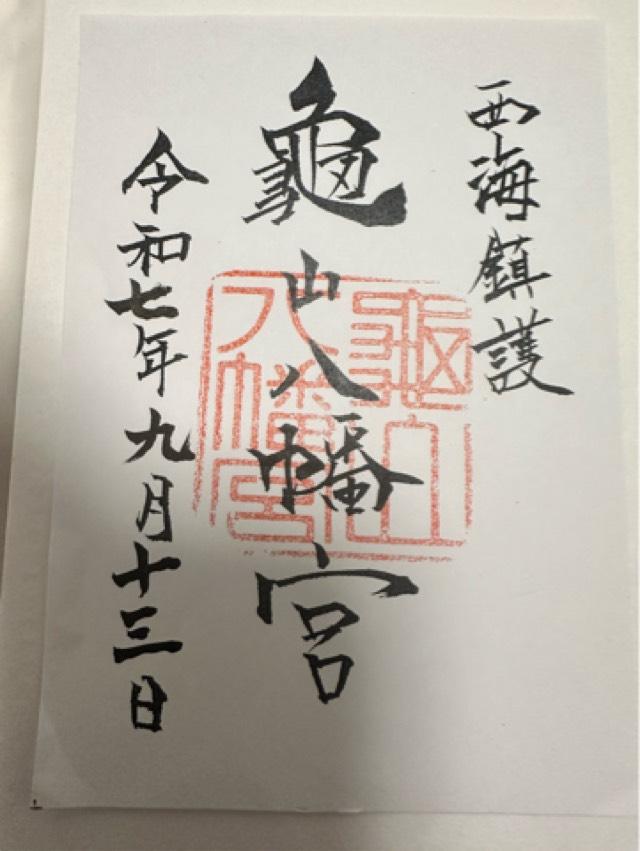 西海鎮護
龜山八幡宮
龜山
八幡宮
令和七年九月十三日